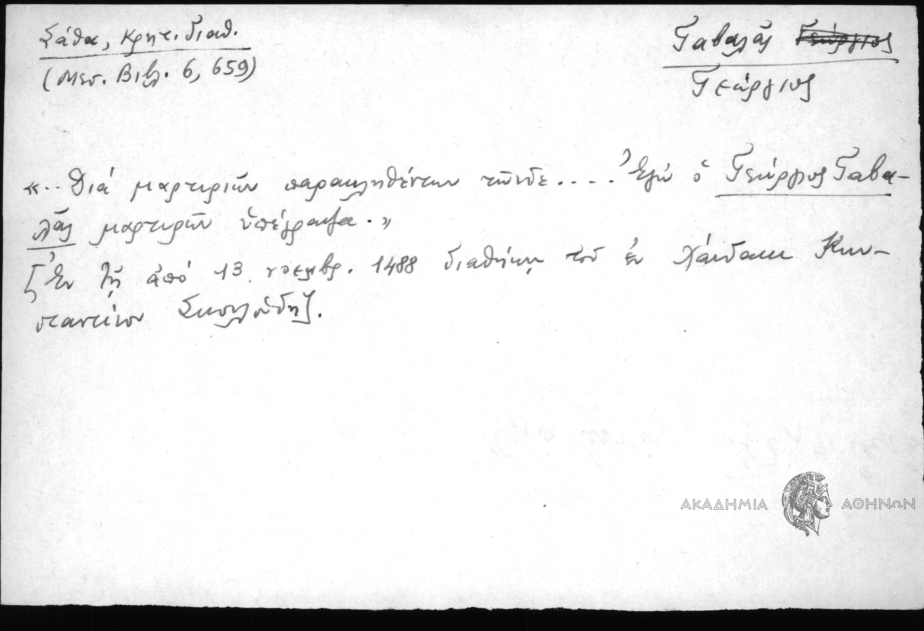 Σάθα, Κρητ. διαθ.
(Μεσ. Βιβλ. 6, 659)
Γαβαλᾶς Γεώργιος
Γεώργιος
«.. Διά μαρτυριῶν παρακληθέντων τῶνδε.... Ἐγώ ὁ Γεώργιος Γαβα-
λᾶς μαρτυρῶν ὑπέγραψα.»
[Ἐν τῇ ἀπό 13 νοεμβρ. 1488 διαθήκῃ τοῦ ἐν Χάνδακι Κων-
σταντίνου].
ΑΚΑΔΗΜΙΑ ΑΘΗΝΩΝ